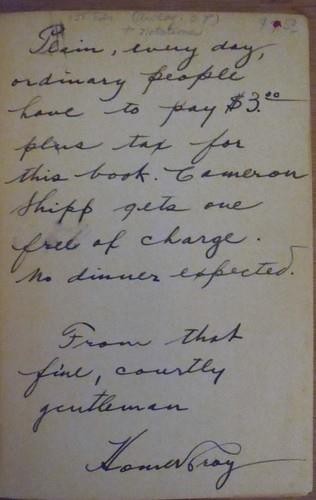 1st Edn
+ notations
Plain, every day,
ordinary people
have to pay $3.00
plus tax for
this book. Cameron
Shipp gets one
free of charge.
No dinner expected.
From that
fine, courtly
gentleman
Homer Croy